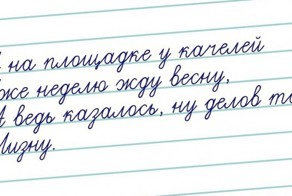 на площадке у качелей
же неделю жду весну,
А ведь казалось, ну делов то
Чизну.